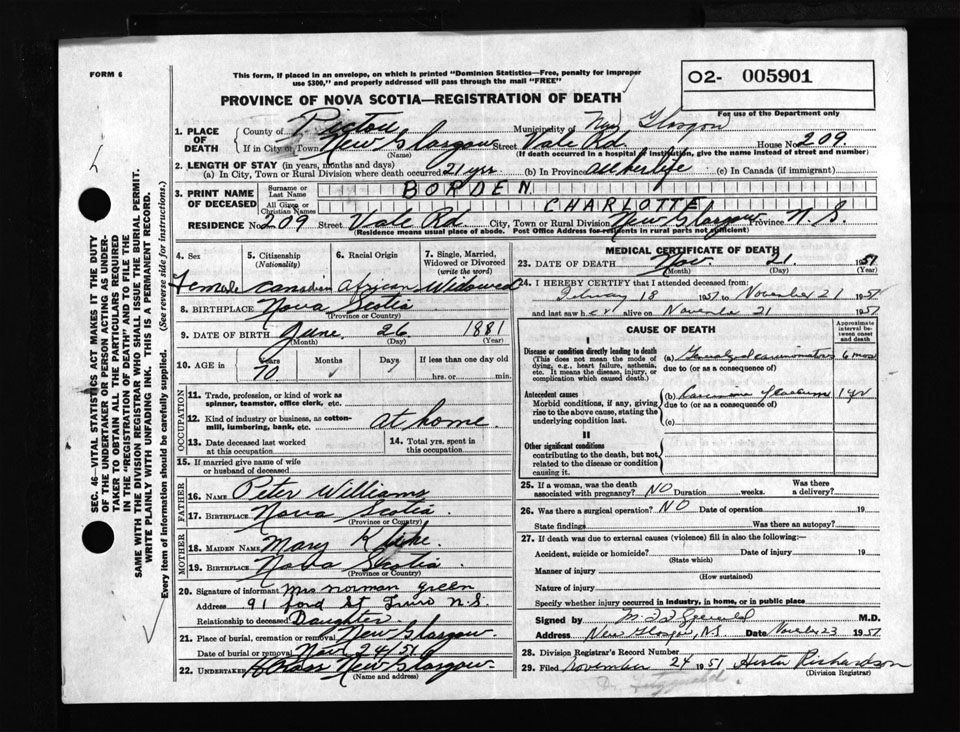 FORM 6
This form, if placed in an envelope, on which is printed "Dominion Statistics—Free, penalty for improper
use $300," and properly addressed will pass through the mail "FREE"
O2- 005901
For use of the Department only
PROVINCE OF NOVA SCOTIA—REGISTRATION OF DEATH
1. PLACE OF DEATH
County of Pictou Municipality of New Glasgow
If in City or Town New Glasgow Street Vale Rd House No. 209
(Name) (If death occurred in a hospital or institution, give the name instead of street and number)
2. LENGTH OF STAY (in years, months and days)
(a) In City, Town or Rural Division where death occurred 21 yrs (b) In Province all her life (c) In Canada (if immigrant)
3. PRINT NAME OF DECEASED
Surname or Last Name BORDEN
All Given or Christian Names CHARLOTTE
RESIDENCE No. 209 Street Vale Rd City, Town or Rural Division New Glasgow Province N.S.
(Residence means usual place of abode. Post Office Address for residents in rural parts not sufficient)
4. Sex 5. Citizenship (Nationality) 6. Racial Origin 7. Single, Married, Widowed or Divorced (write the word)
Female Canadian African Widowed
8. BIRTHPLACE Nova Scotia
(Province or Country)
9. DATE OF BIRTH June 26 1881
(Month) (Day) (Year)
10. AGE in Years Months Days If less than one day old
70 hrs. or min.
OCCUPATION
11. Trade, profession, or kind of work as
spinner, teamster, office clerk, etc.
12. Kind of industry or business, as cotton-
mill, lumbering, bank, etc. at home.
13. Date deceased last worked
at this occupation
14. Total yrs. spent in
this occupation
15. If married give name of wife
or husband of deceased
FATHER
16. NAME Peter Williams
17. BIRTHPLACE Nova Scotia
(Province or Country)
MOTHER
18. MAIDEN NAME Mary
19. BIRTHPLACE Nova Scotia
(Province or Country)
20. Signature of informant Mrs Norman Green
Address 91 Ford St Truro N.S.
Relationship to deceased Daughter
21. Place of burial, cremation or removal New Glasgow.
Date of burial or removal Nov 24/51
22. UNDERTAKER New Glasgow.
(Name and address)
MEDICAL CERTIFICATE OF DEATH
23. DATE OF DEATH Nov. 21 1951
(Month) (Day) (Year)
24. I HEREBY CERTIFY that I attended deceased from
18 1951 to November 21 1951
and last saw her alive on November 21 1951
CAUSE OF DEATH
Approximate interval between onset and death
I
Disease or condition directly leading to death
(This does not mean the mode of
dying, e.g., heart failure, asthenia,
etc. It means the disease, injury, or
complication which caused death.)
(a) Generalized carcinomatosis 6 mos
due to (or as a consequence of)
Antecedent causes
Morbid conditions, if any, giving
rise to the above cause, stating the
underlying condition last.
(b) Carcinoma 1 yr
due to (or as a consequence of)
(c)
II
Other significant conditions
contributing to the death, but not
related to the disease or condition
causing it.
25. If a woman, was the death
associated with pregnancy? NO Duration weeks. Was there a delivery?
26. Was there a surgical operation? NO Date of operation 19
State findings Was there an autopsy?
27. If death was due to external causes (violence) fill in also the following:—
Accident, suicide or homicide? Date of injury 19
(State which)
Manner of injury
(How sustained)
Nature of injury
Specify whether injury occurred in industry, in home, or in public place
Signed by M.D.
Address New Glasgow, NS Date November 23 1951
28. Division Registrar's Record Number
29. Filed November 24 1951 Richardson
(Division Registrar)
SEC. 46—VITAL STATISTICS ACT MAKES IT THE DUTY
OF THE UNDERTAKER OR PERSON ACTING AS UNDER-
TAKER TO OBTAIN ALL THE PARTICULARS REQUIRED
IN THE "REGISTRATION OF DEATH" AND TO FILE THE
SAME WITH THE DIVISION REGISTRAR WHO SHALL ISSUE THE BURIAL PERMIT.
WRITE PLAINLY WITH UNFADING INK. THIS IS A PERMANENT RECORD.
Every item of information should be carefully supplied. (See reverse side for instructions.)